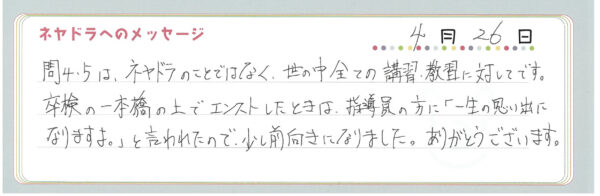 ネヤドラへのメッセージ 4月26日
問4.5は、ネヤドラのことではなく、世の中全ての講習.教習に対してです。
卒検の一本橋の上でエンストしたときは、指導員の方に「一生の思い出に
なりますよ。」と言われたので、少し前向きになりました。ありがとうございます。